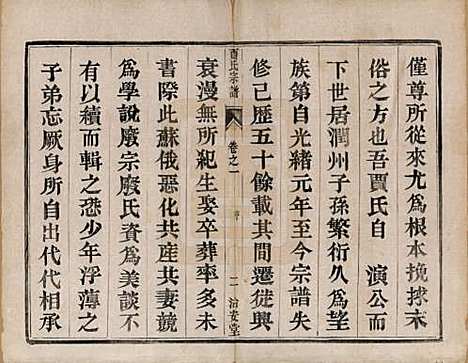 僅尊所從來尤爲根本挽捄末
俗之方也吾賈氏自 演公而
下世居潤州子孫繁衍久爲望
族第自光緒元年至今宗譜失
修己歷五十餘載其間遷徙興
賈氏宗譜 卷之一 序 二 治安堂
衰漫無所紀生娶卒葬率多未
書際此蘇俄惡化共産共妻競
爲學說廢宗廢氏資爲美談不
有以續而輯之恐少年浮薄之
子弟忘厥身所自出代代相承